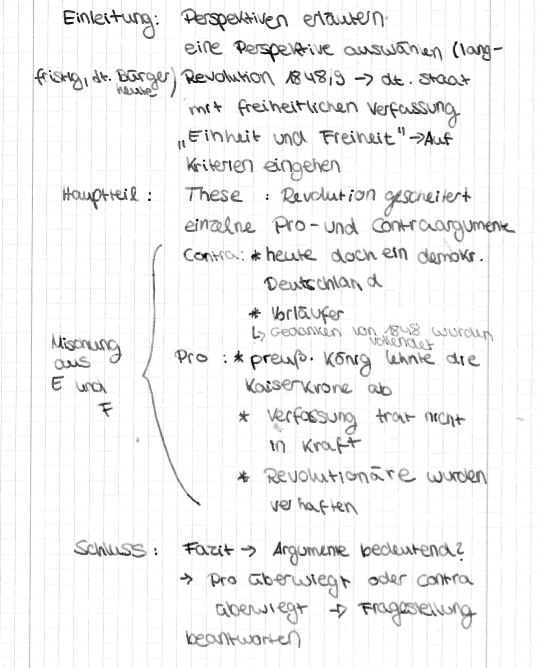 Einleitung: Perspektiven erläutern
eine Perspektive auswählen (lang-
fristig, dt. Bürger heute) Revolution 1848/9 → dt. Staat
mit freiheitlichen Verfassung
"Einheit und Freiheit" → Auf
Kriterien eingehen
Hauptteil: These : Revolution gescheitert
einzelne Pro- und Contraargumente
Contra: * heute doch ein demokr.
Deutschland
* Vorläufer
↳ Gedanken von 1848 wurden
vollendet
Mischung
aus
E und
F
Pro : * preuß. König lehnte die
Kaiserkrone ab
* Verfassung trat nicht
in Kraft
* Revolutionäre wurden
verhaften
Schluss: Fazit → Argumente bedeutend?
→ Pro überwiegt oder contra
überwiegt → Fragestellung
beantworten